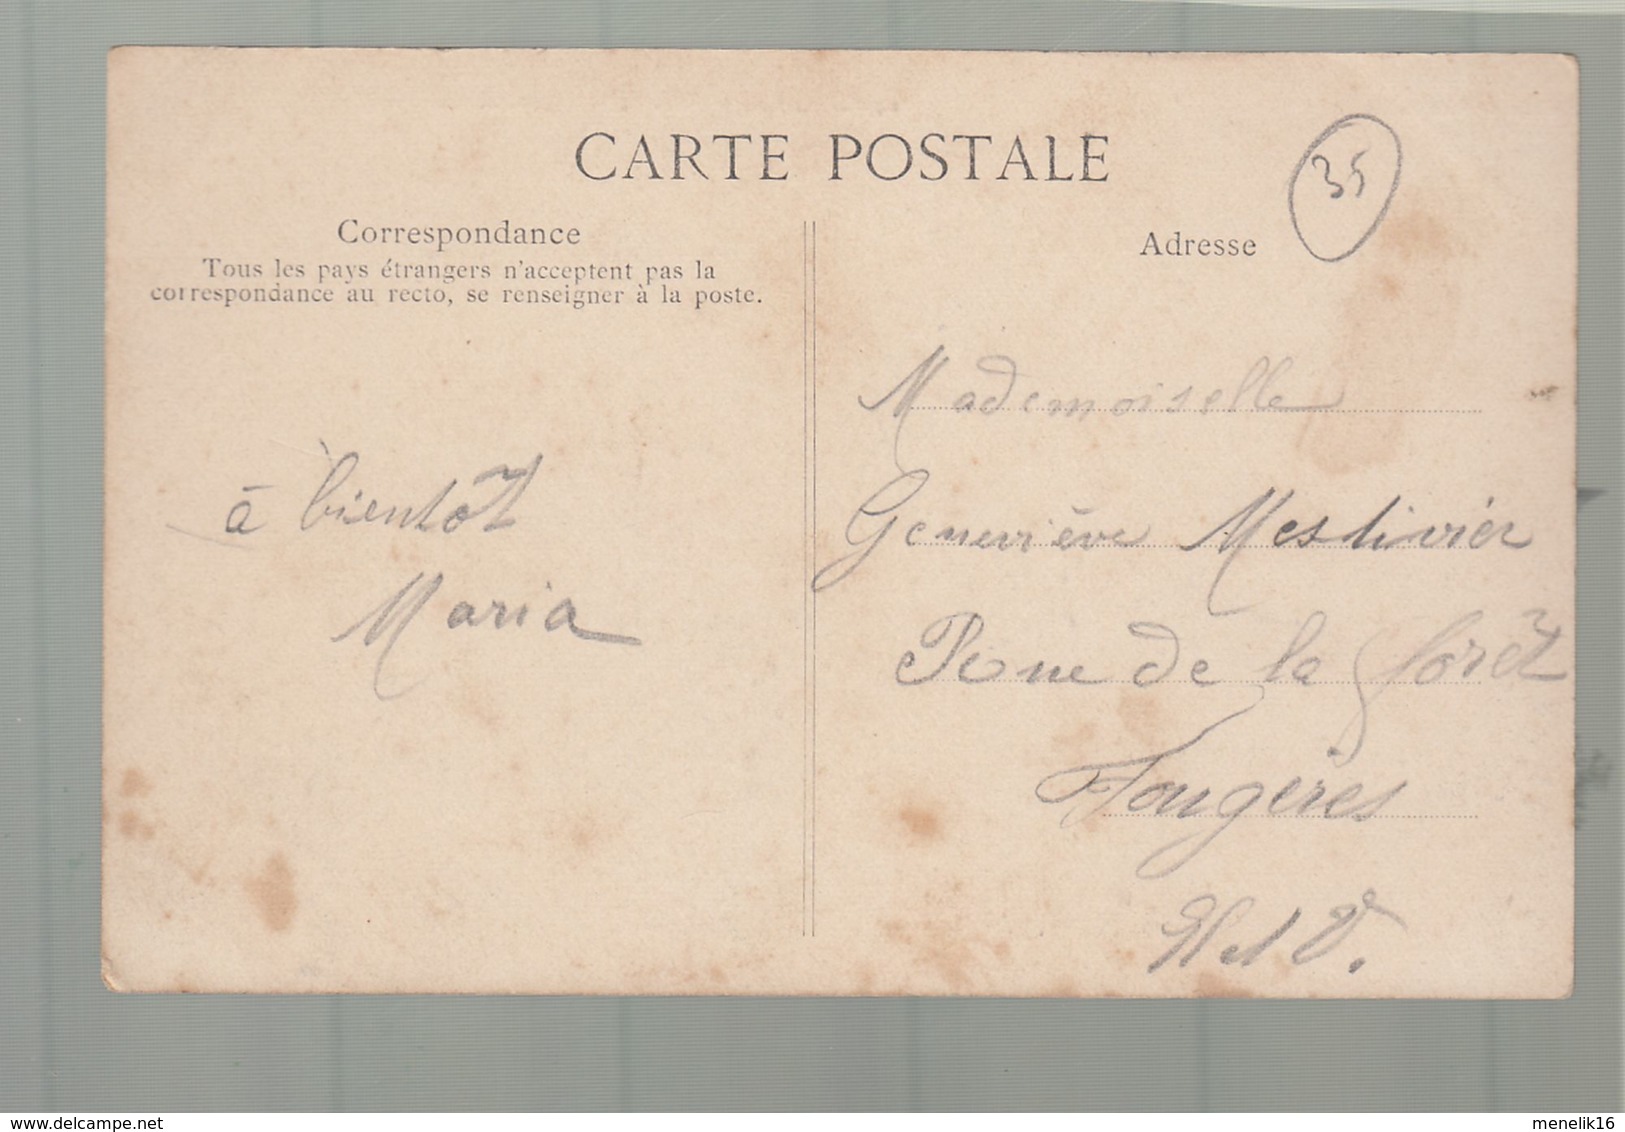 CARTE POSTALE
35
Correspondance
Tous les pays étrangers n'acceptent pas la
correspondance au recto, se renseigner à la poste.
à bientôt
Maria
Adresse
Mademoiselle
Geneviève Mestivier
Rue de la forêt
Fougères
I et V.
menelik16